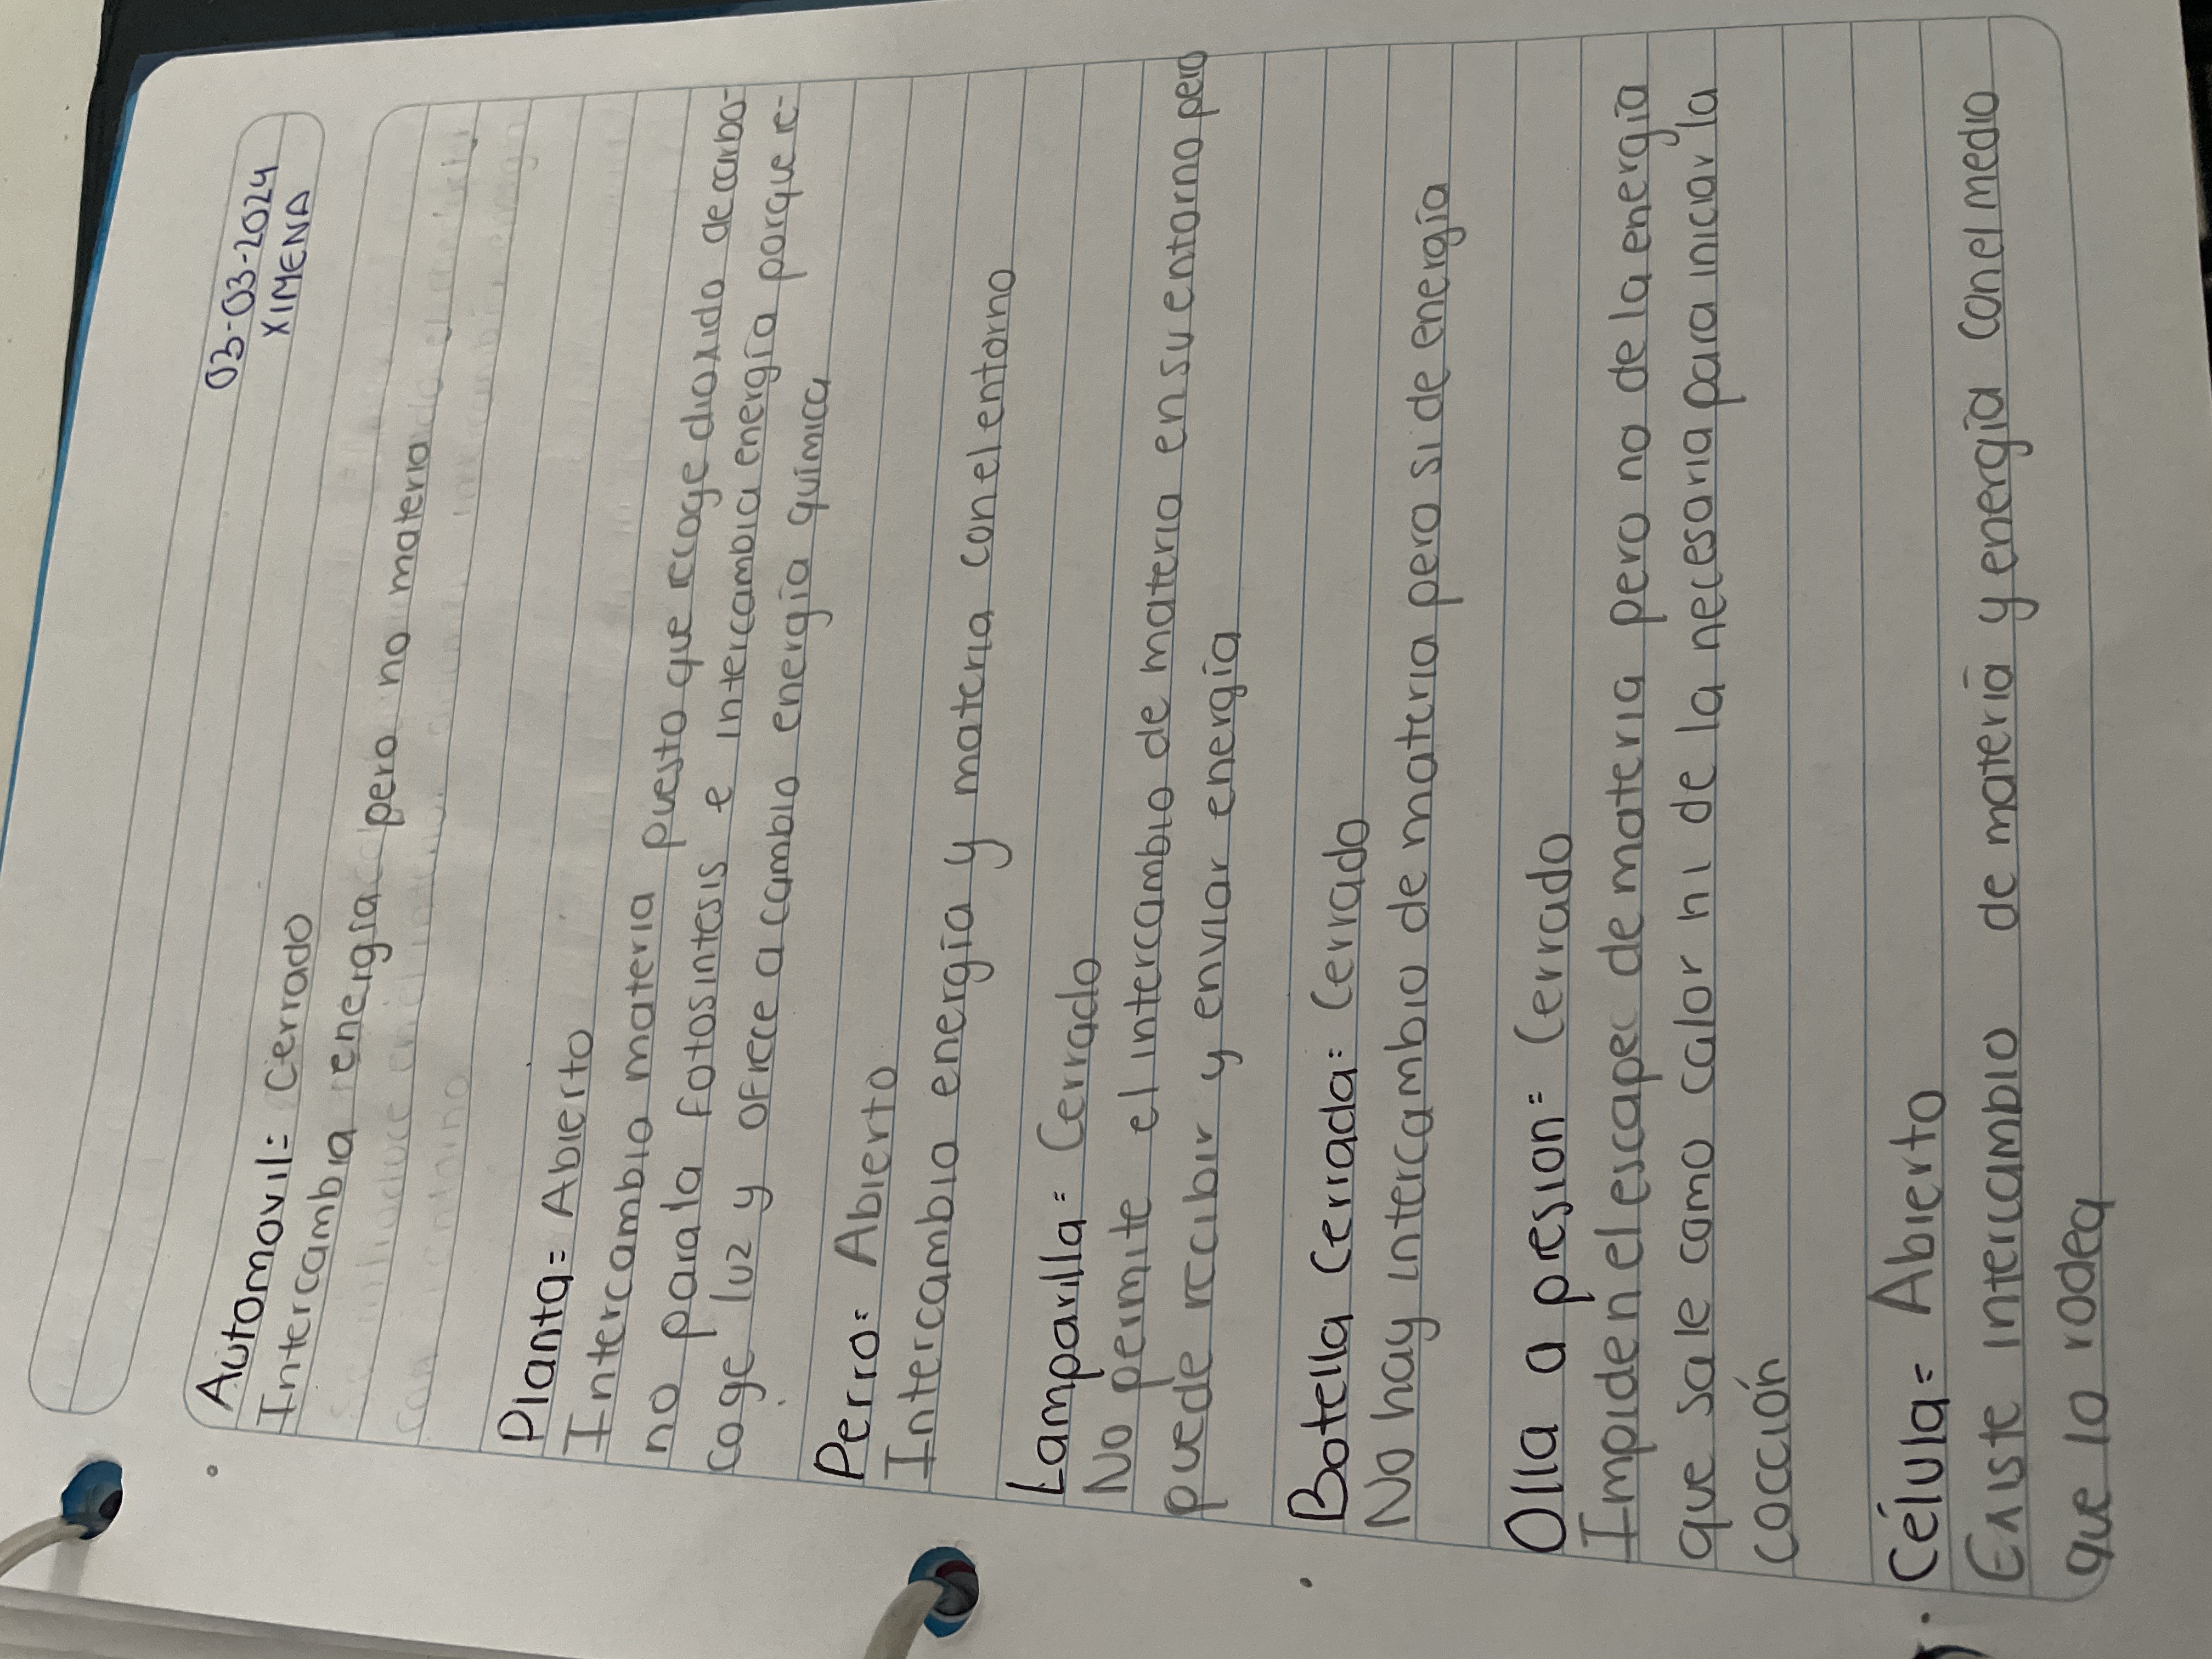 03-03-2024
XIMENA
Automovil= Cerrado
Intercambia energía pero no materia
Planta= Abierto
Intercambio materia puesto que recoge dioxido de carbo-
no para la fotosintesis e intercambia energía porque re-
coge luz y ofrece a cambio energía química
Perro= Abierto
Intercambio energía y materia con el entorno
Lamparilla= Cerrado
No permite el intercambio de materia en su entorno pero
puede recibir y enviar energía
Botella Cerrada= Cerrado
No hay intercambio de materia pero si de energía
Olla a presion= Cerrado
Impiden el escapec de materia pero no de la energía
que sale como calor ni de la necesaria para iniciar la
cocción
Célula= Abierto
Existe intercambio de materia y energía con el medio
que lo rodea